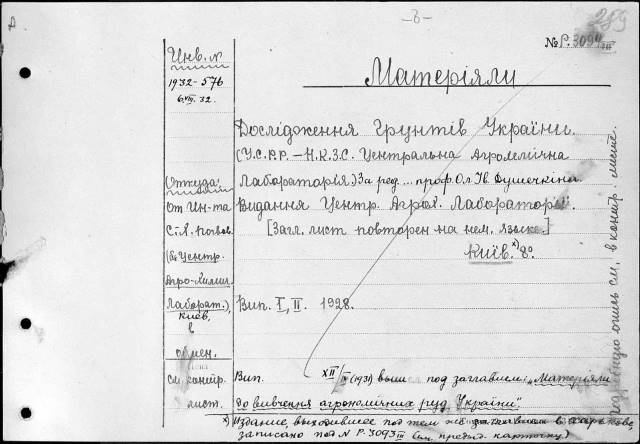 А
-3-
289
№ Р.3094 III
Инв. №
1932-576
6.VIII.32.
Матеріяли
Дослідження Ґрунтів України.
(У.С.Р.Р.-Н.К.З.С. Центральна Агрохемічна
Лабораторія) За ред... проф. Ол. Ів. Душечкіна
Видання Центр. Агрох. Лабораторії.
[Загл. лист повторен на нем. языке.]
Київ. х) 8º
Вип. I, II. 1928.
Откуда
От Ин-та
С.-Х.
(б. Центр.
Агро-Химич.
Лаборат.),
Киев,
в
обмен.
см. контр.
лист.
Вип. XII/II (1931) вышел под заглавием: "Матеріяли
До вивчення агрономічних руд України".
х) Издание, выходившее под тем же заглавием в Харькове,
записано под № Р-3093 III (см. предыд. карточку)
Подробную опись см. в контр. листе.